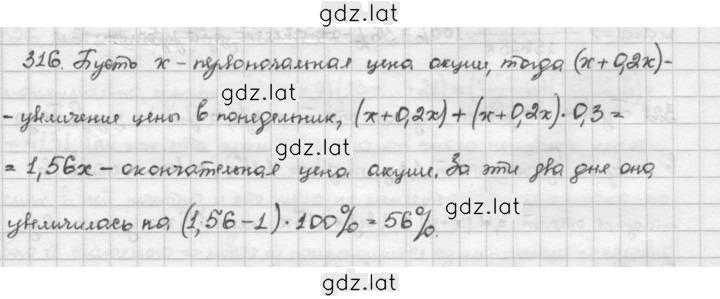 gdz.lat
316. Пусть x – первоначальная цена акции, тогда (x+0,2x)-
gdz.lat
- увеличение цены в понедельник, (x+0,2x)+(x+0,2x)·0,3=
gdz.lat
= 1,56x – окончательная цена акции. За эти два дня она
gdz.lat
увеличилась на (1,56-1)·100%=56%.
gdz.lat
gdz.lat